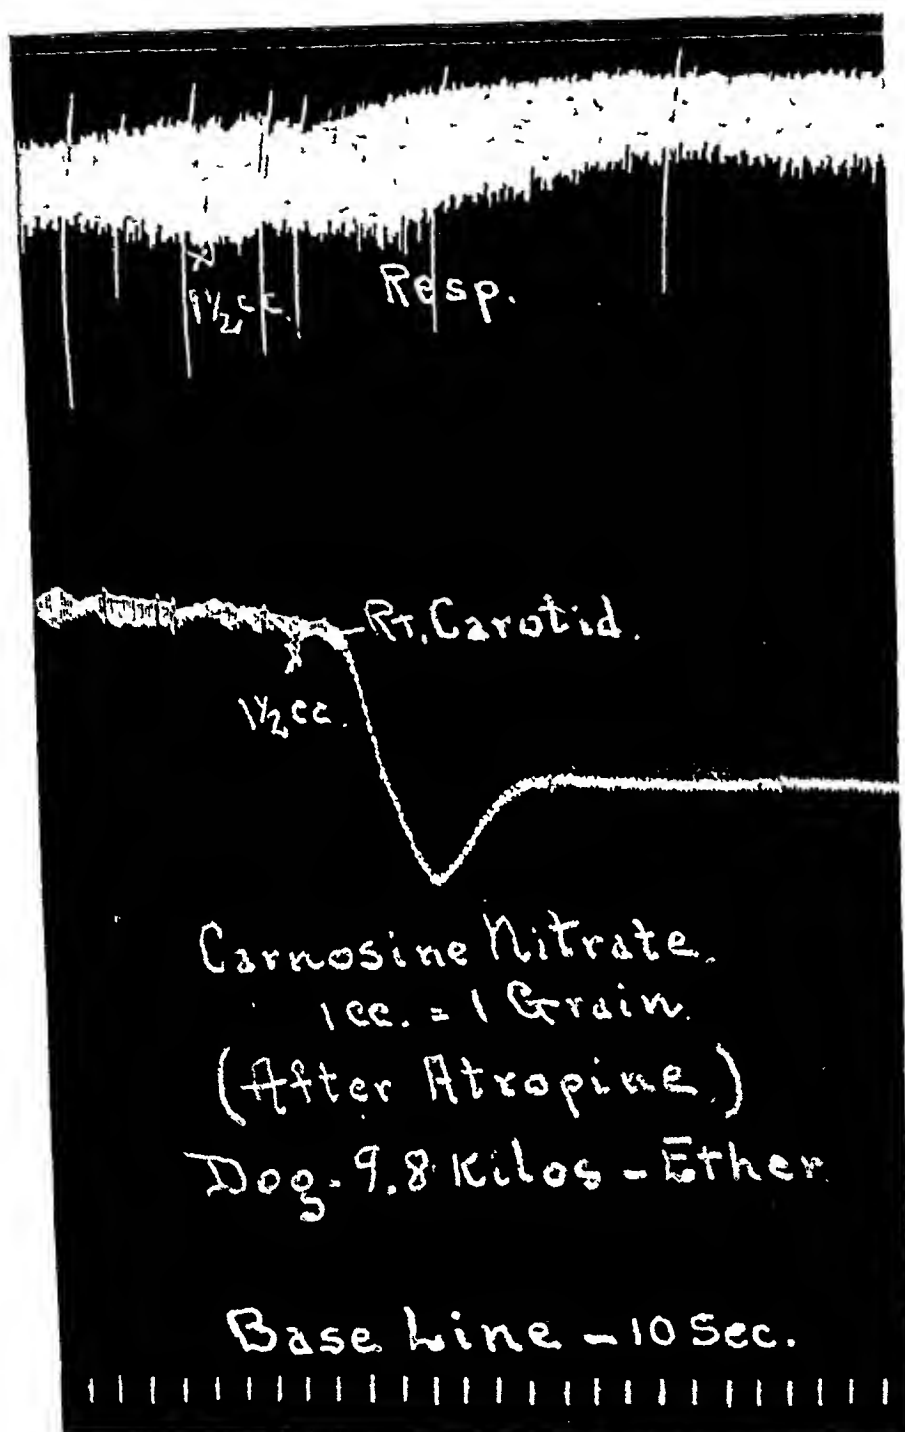 1½ cc.
Resp.
Rt. Carotid.
1½ cc.
Carnosine Nitrate.
1 cc. = 1 Grain.
(After Atropine.)
Dog. 9.8 Kilos - Ether
Base Line - 10 Sec.